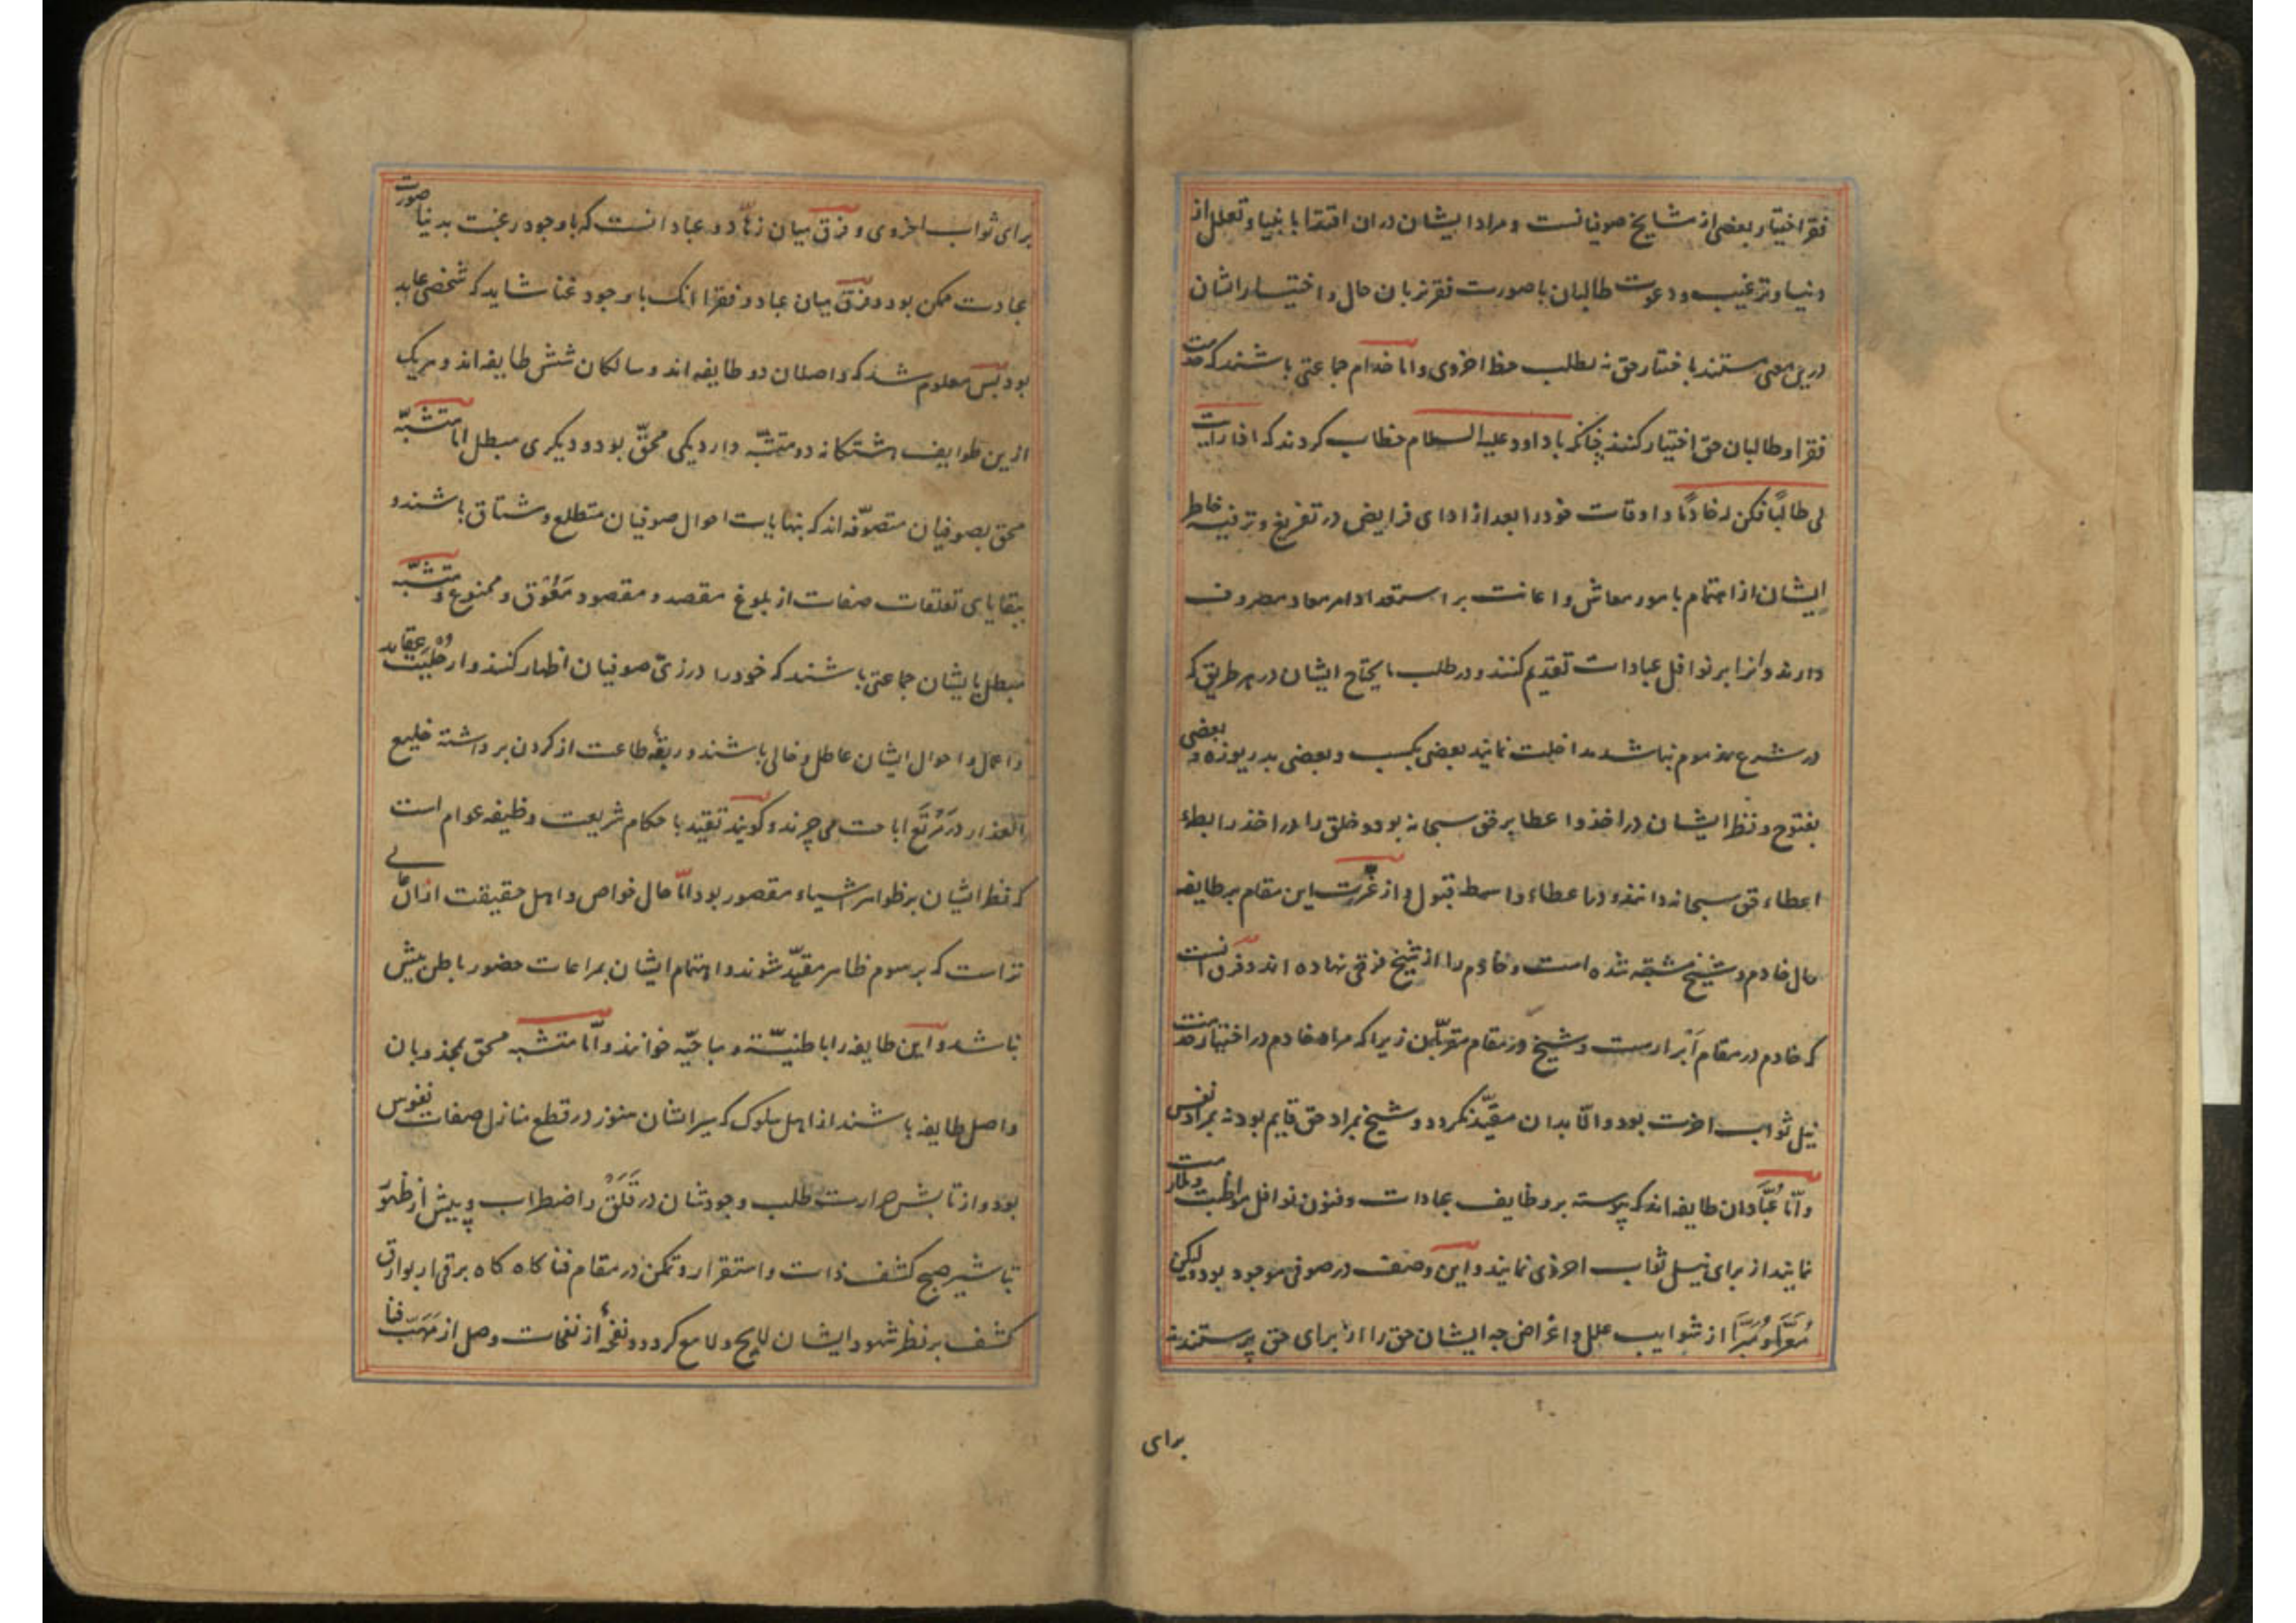 فقر اختیار بعضی از مشایخ صوفیانست و مراد ایشان دران اقتدا بانبیا و تعلل از
دنیا و ترغیب و دعوت طالبان با صورت فقر بزبان حال و اختیار ایشان
درین معنی مستند باختیار حق نه بطلب حظ اخروی و اما خدام جماعتی باشند که خدمت
فقرا و طالبان حق اختیار کنند چنانکه با داود علیه السلام خطاب کردند که اذا رایت
لی طالبًا فکن له خادمًا و اوقات خود را بعد از ادای فرایض در تفریغ و ترفیه خاطر
ایشان از اهتمام بامور معاش و اعانت بر استعداد امر معاد مصروف
دارند و انرا بر نوافل عبادات تقدیم کنند و در طلب مایحتاج ایشان در هر طریق که
در شرع مذموم نباشد مداخلت نمایند بعضی بکسب و بعضی بدریوزه و بعضی
بفتوح و نظر ایشان در اخذ و اعطا بر حق سبحانه بود و خلق را در اخذ رابطه
اعطاء حق سبحانه دانند و در اعطاء واسطه قبول و از عزت این مقام بر طایفه
حال خادم و شیخ مشتبه شده است و خادم را از شیخ فرقی نهاده اند و فرق انست
که خادم در مقام اَبرارست و شیخ در مقام مقربان زیرا که مراد خادم در اختیار خدمت
نیل ثواب اخرت بود و الّا بدان مقیّد نکردد و شیخ بمراد حق قایم بود نه بمراد نفس
و امّا عُبّادان طایفه اند که پیوسته بر وظایف عبادات و فنون نوافل مواظبت و ملازمت
نمایند از برای نیل ثواب اخروی نمایند و این وصف در صوفی موجود بود ولیکن
مُعَرّا و مُبَرّا از شوایب علل و اغراض چه ایشان حق را از برای حق پرستند نه
برای
برای ثواب اخروی و فرق میان زهّاد و عباد انست که باوجود رغبت بدنیا صورت
عبادت ممکن بود و فرق میان عباد و فقرا انک باوجود غنا شاید که شخصی عابد
بود پس معلوم شد که واصلان دو طایفه اند و سالکان شش طایفه اند و هریک
ازین طوایف هشتکانه دو متشبّه دارد یکی محقّ بود و دیکری مبطل اما متشبّه
محق بصوفیان متصوّفه اند که بنهایات احوال صوفیان متطلع و مشتاق باشند و
ببقایای تعلقات صفات از بلوغ مقصد و مقصود مَعُوق و ممنوع و متشبّه
مبطل بایشان جماعتی باشند که خود را در زیّ صوفیان اظهار کنند و از حلیت عقاید
و اعمال و احوال ایشان عاطل و خالی باشند و ربقهٔ طاعت از کردن برداشته خلیع
العذار در مَرْتَع اباحت می چرند و کویند تقیّد باحکام شریعت وظیفه عوام است
که نظر ایشان بر ظواهر اشیاء مقصور بود امّا حال خواص و اهل حقیقت ازان عالی
تر است که برسوم ظاهر مقیّد شوند و اهتمام ایشان بمراعات حضور باطن بیش
نباشد و این طایفه را باطنیّه و مباحیّه خوانند و امّا متشبه محق بمجذوبان
واصل طایفه باشند از اهل سلوک که سیر ایشان هنوز در قطع منازل صفات نفوس
بود و از تابش حرارت طلب وجودشان در قَلَق و اضطراب و پیش از ظهور
تباشیر صبح کشف ذات و استقرار و تمکن در مقام فنا کاه کاه برقی از بوارق
کشف بر نظر شهود ایشان لایح و لامع کردد و نفحهٔ از نفحات وصل از مَهَبّ فنا